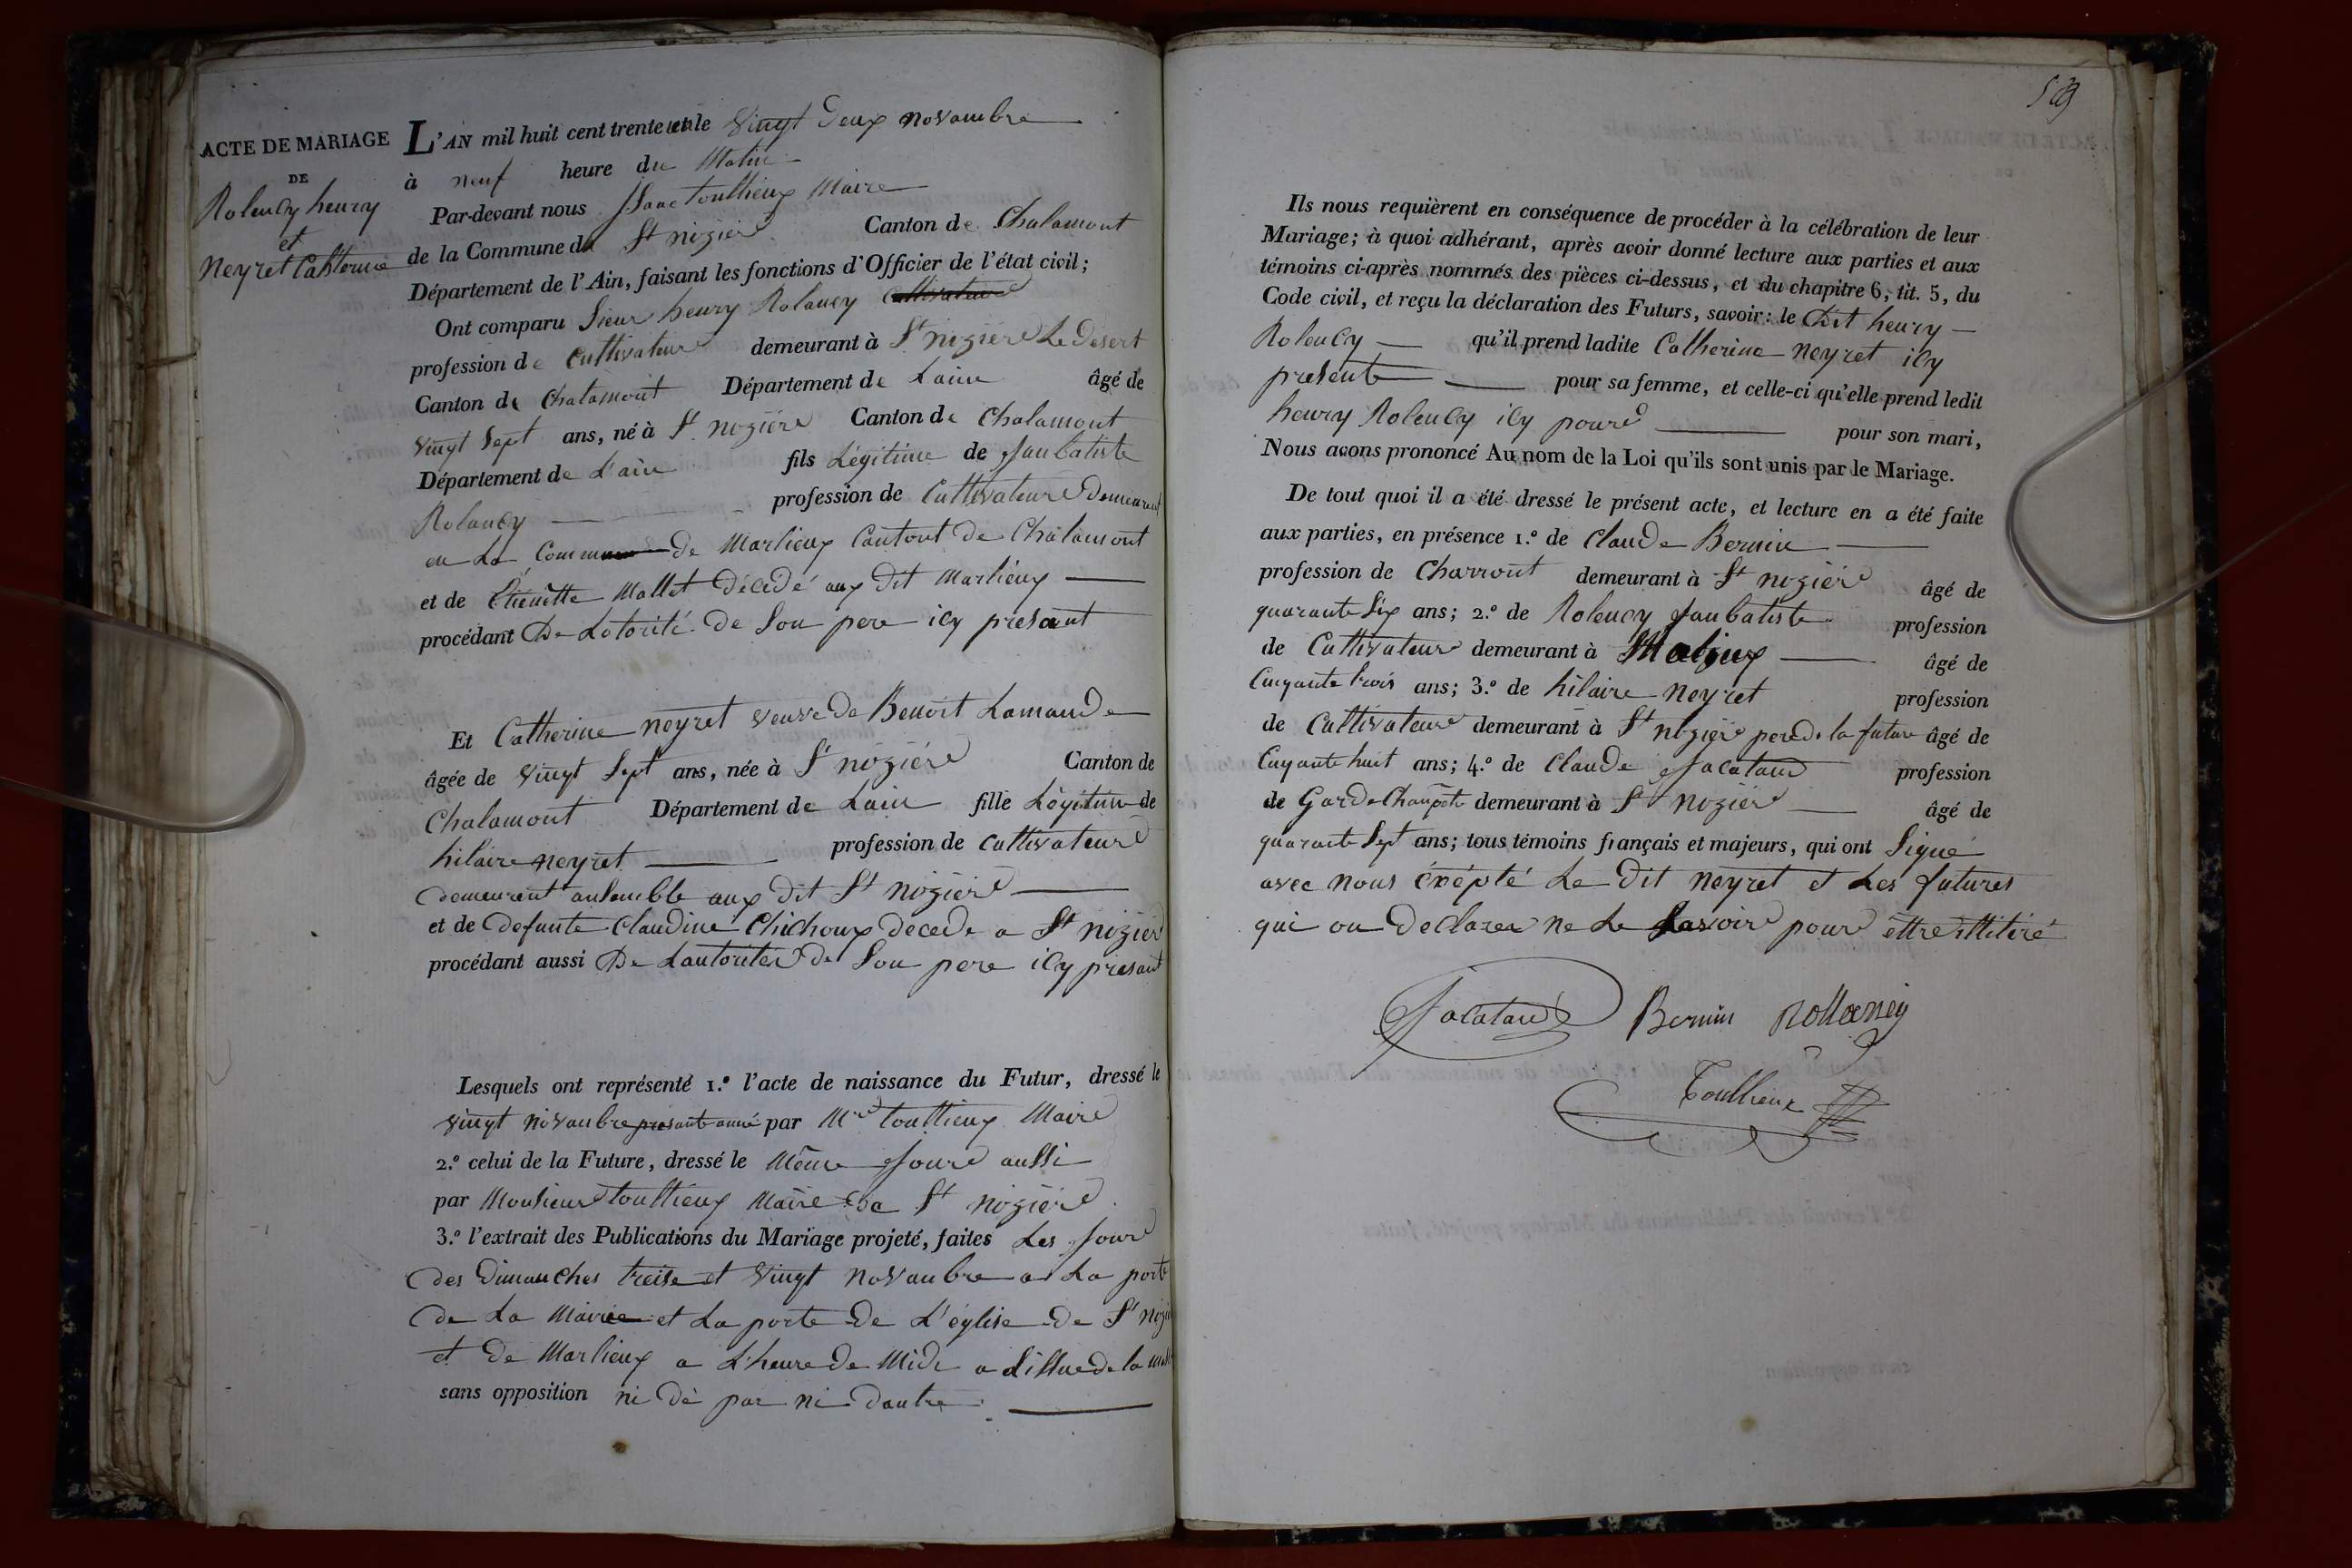 ACTE DE MARIAGE
DE
Rolency henry
et
Neyret Catterine
L'AN mil huit cent trente et le vingt deux novambre
à neuf heure du Matin
Par-devant nous Isaac toullieux Maire
de la Commune de St nizier Canton de Chalamont
Département de l'Ain, faisant les fonctions d'Officier de l'état civil;
Ont comparu Sieur henry Rolancy Cultivateur
profession de Cultivateur demeurant à St niziere Le Desert
Canton de Chalamont Département de Lain âgé de
vingt sept ans, né à St niziére Canton de Chalamont
Département de L'ain fils Légitime de Janbatiste
Rolancy profession de Cultivateur demeurant
en La Commune de Marlieux Cantont de Chalamont
et de Etienette Mallet décédé aux dit Marlieux
procédant De Lotorité de Son pere icy présant
Et Catherine neyret veuve de Benoit Lamande
âgée de vingt Sept ans, née à St niziére Canton de
Chalamont Département de Lain fille Légitime de
hilaire neyret profession de cultivateur
demeurent ansemble aux dit St niziere
et de defunte Claudine Chichoux decede a St nizier
procédant aussi De Lautoriter de Son pere icy présant
Lesquels ont représenté 1.º l'acte de naissance du Futur, dressé le
vingt novambre présante anné par Mr toullieux Maire
2.º celui de la Future, dressé le Même Jour aussi
par Monsieur toullieux Maire De St niziere
3.º l'extrait des Publications du Mariage projeté, faites Les Jour
des Dimanches treise et vingt novanbre a La porte
de La Mairie et La porte de L'église de St nizier
et De Marlieux a L'heure de Midi a Lissue de la Messe
sans opposition ni dè par ni dautre
569
Ils nous requièrent en conséquence de procéder à la célébration de leur
Mariage; à quoi adhérant, après avoir donné lecture aux parties et aux
témoins ci-après nommés des pièces ci-dessus, et du chapitre 6, tit. 5, du
Code civil, et reçu la déclaration des Futurs, savoir: le dit heury
Rolency qu'il prend ladite Catherine neyret icy
présente pour sa femme, et celle-ci qu'elle prend ledit
heury Rolency icy pour pour son mari,
Nous avons prononcé Au nom de la Loi qu'ils sont unis par le Mariage.
De tout quoi il a été dressé le présent acte, et lecture en a été faite
aux parties, en présence 1.º de Claude Bernin
profession de Charront demeurant à St niziér âgé de
quarante Six ans; 2.º de Rolency Janbatiste profession
de Cultivateur demeurant à âgé de
Cinqante trois ans; 3.º de hilaire neyret profession
de Cultivateur demeurant à St nizier pere de la future âgé de
Cinqante huit ans; 4.º de Claude Jacataud profession
de Garde Champete demeurant à St niziér âgé de
quarante Sept ans; tous témoins français et majeurs, qui ont Signé
avec nous éxépté Le Dit neyret et Les futures
qui on Declarer ne Le Savoir pour ettre illitiré
Jacataud Bernin Rollancy
Toullieux